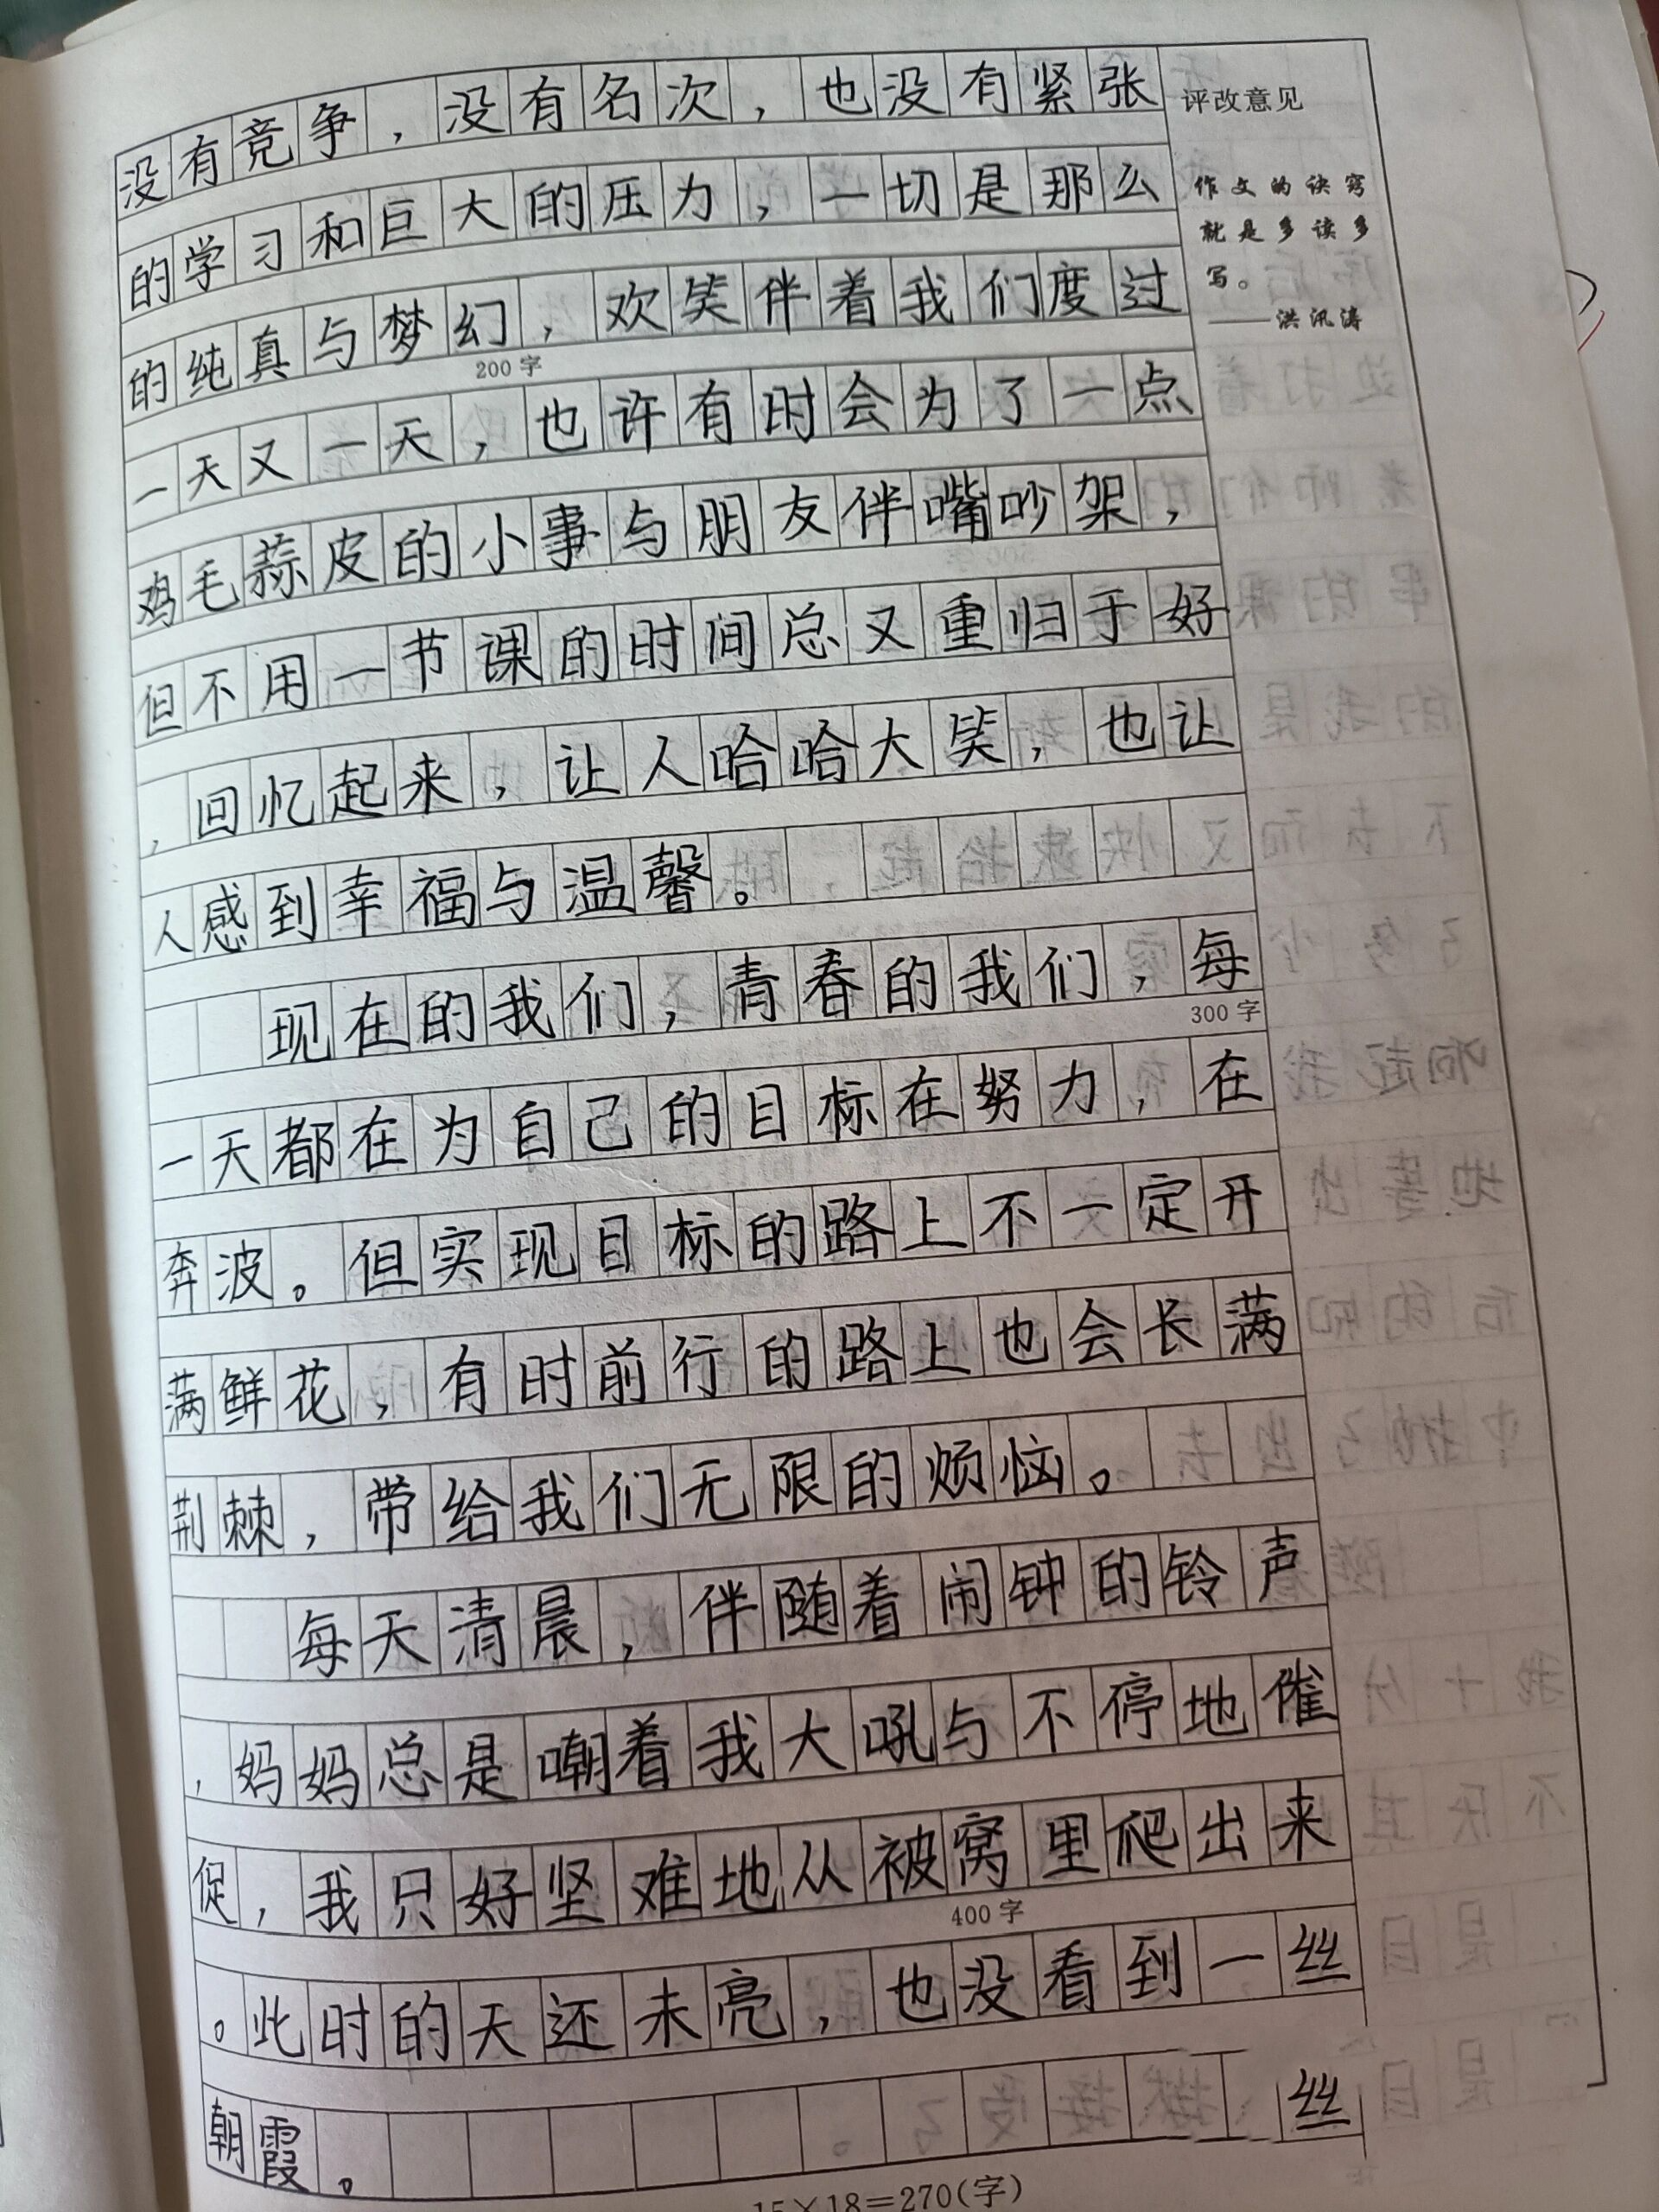 没有竞争，没有名次，也没有紧张
的学习和巨大的压力，一切是那么
的纯真与梦幻，欢笑伴着我们度过
200字
一天又一天，也许有时会为了一点
鸡毛蒜皮的小事与朋友伴嘴吵架，
但不用一节课的时间总又重归于好
，回忆起来，让人哈哈大笑，也让
人感到幸福与温馨。
现在的我们，青春的我们，每
300字
一天都在为自己的目标在努力，在
奔波。但实现目标的路上不一定开
满鲜花，有时前行的路上也会长满
荆棘，带给我们无限的烦恼。
每天清晨，伴随着闹钟的铃声
，妈妈总是嘲着我大吼与不停地催
促，我只好坚难地从被窝里爬出来
400字
。此时的天还未亮，也没看到一丝
朝霞。
丝
15×18=270(字)
评改意见
作文的诀窍
就是多读多
写。
——洪汛涛